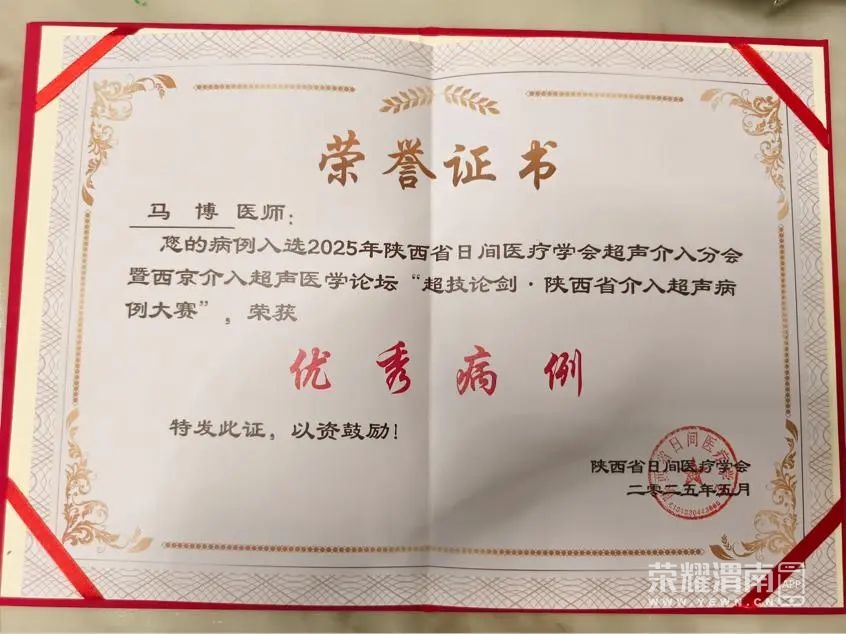 荣誉证书
马 博 医师：
您的病例入选2025年陕西省日间医疗学会超声介入分会
暨西京介入超声医学论坛“超技论剑·陕西省介入超声病
例大赛”，荣获
优秀病例
特发此证，以资鼓励！
陕西省日间医疗学会
二零二五年五月
荣耀渭南
APP
WWW.YEWN.CN